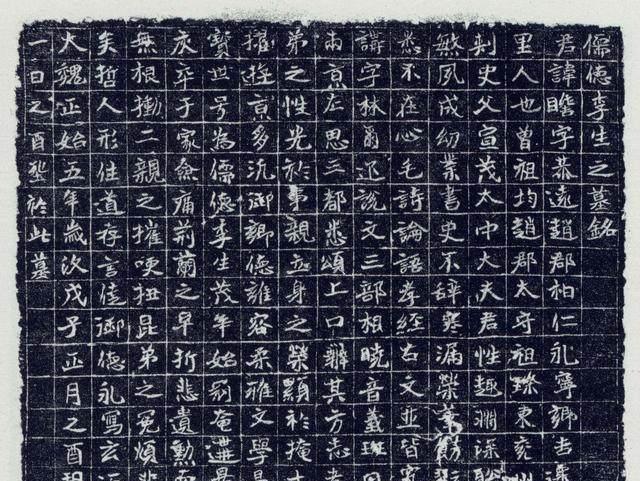 儒德李生之墓銘
君諱瞻字恭遠趙郡柏仁永寧鄉吉遷
里人也曾祖均趙郡太守祖璨東兖州
刾史父宣茂太中大夫君性趣淵深聡
敏夙成幼業書史不辞寒漏榮
悉不在心毛詩論語孝經古文並皆
講字林爾迩說文三部相曉音義班
兩京左思三都悉頌上口辦其方志
弟之性光於事親立身之榮顯於掩
擢遊京多沉御鄉德誰容柔雅文學
寶世号為儒德李生茂年始
庆卒于家僉痛荊蘭之早折悲遺勳
無根慟二親之摧哽抽昆弟之冤煩悲
矣哲人形往道存言佳御德永寫玄
大魏正始五年歲次戊子正月之酉
一日之酉塟於此墓